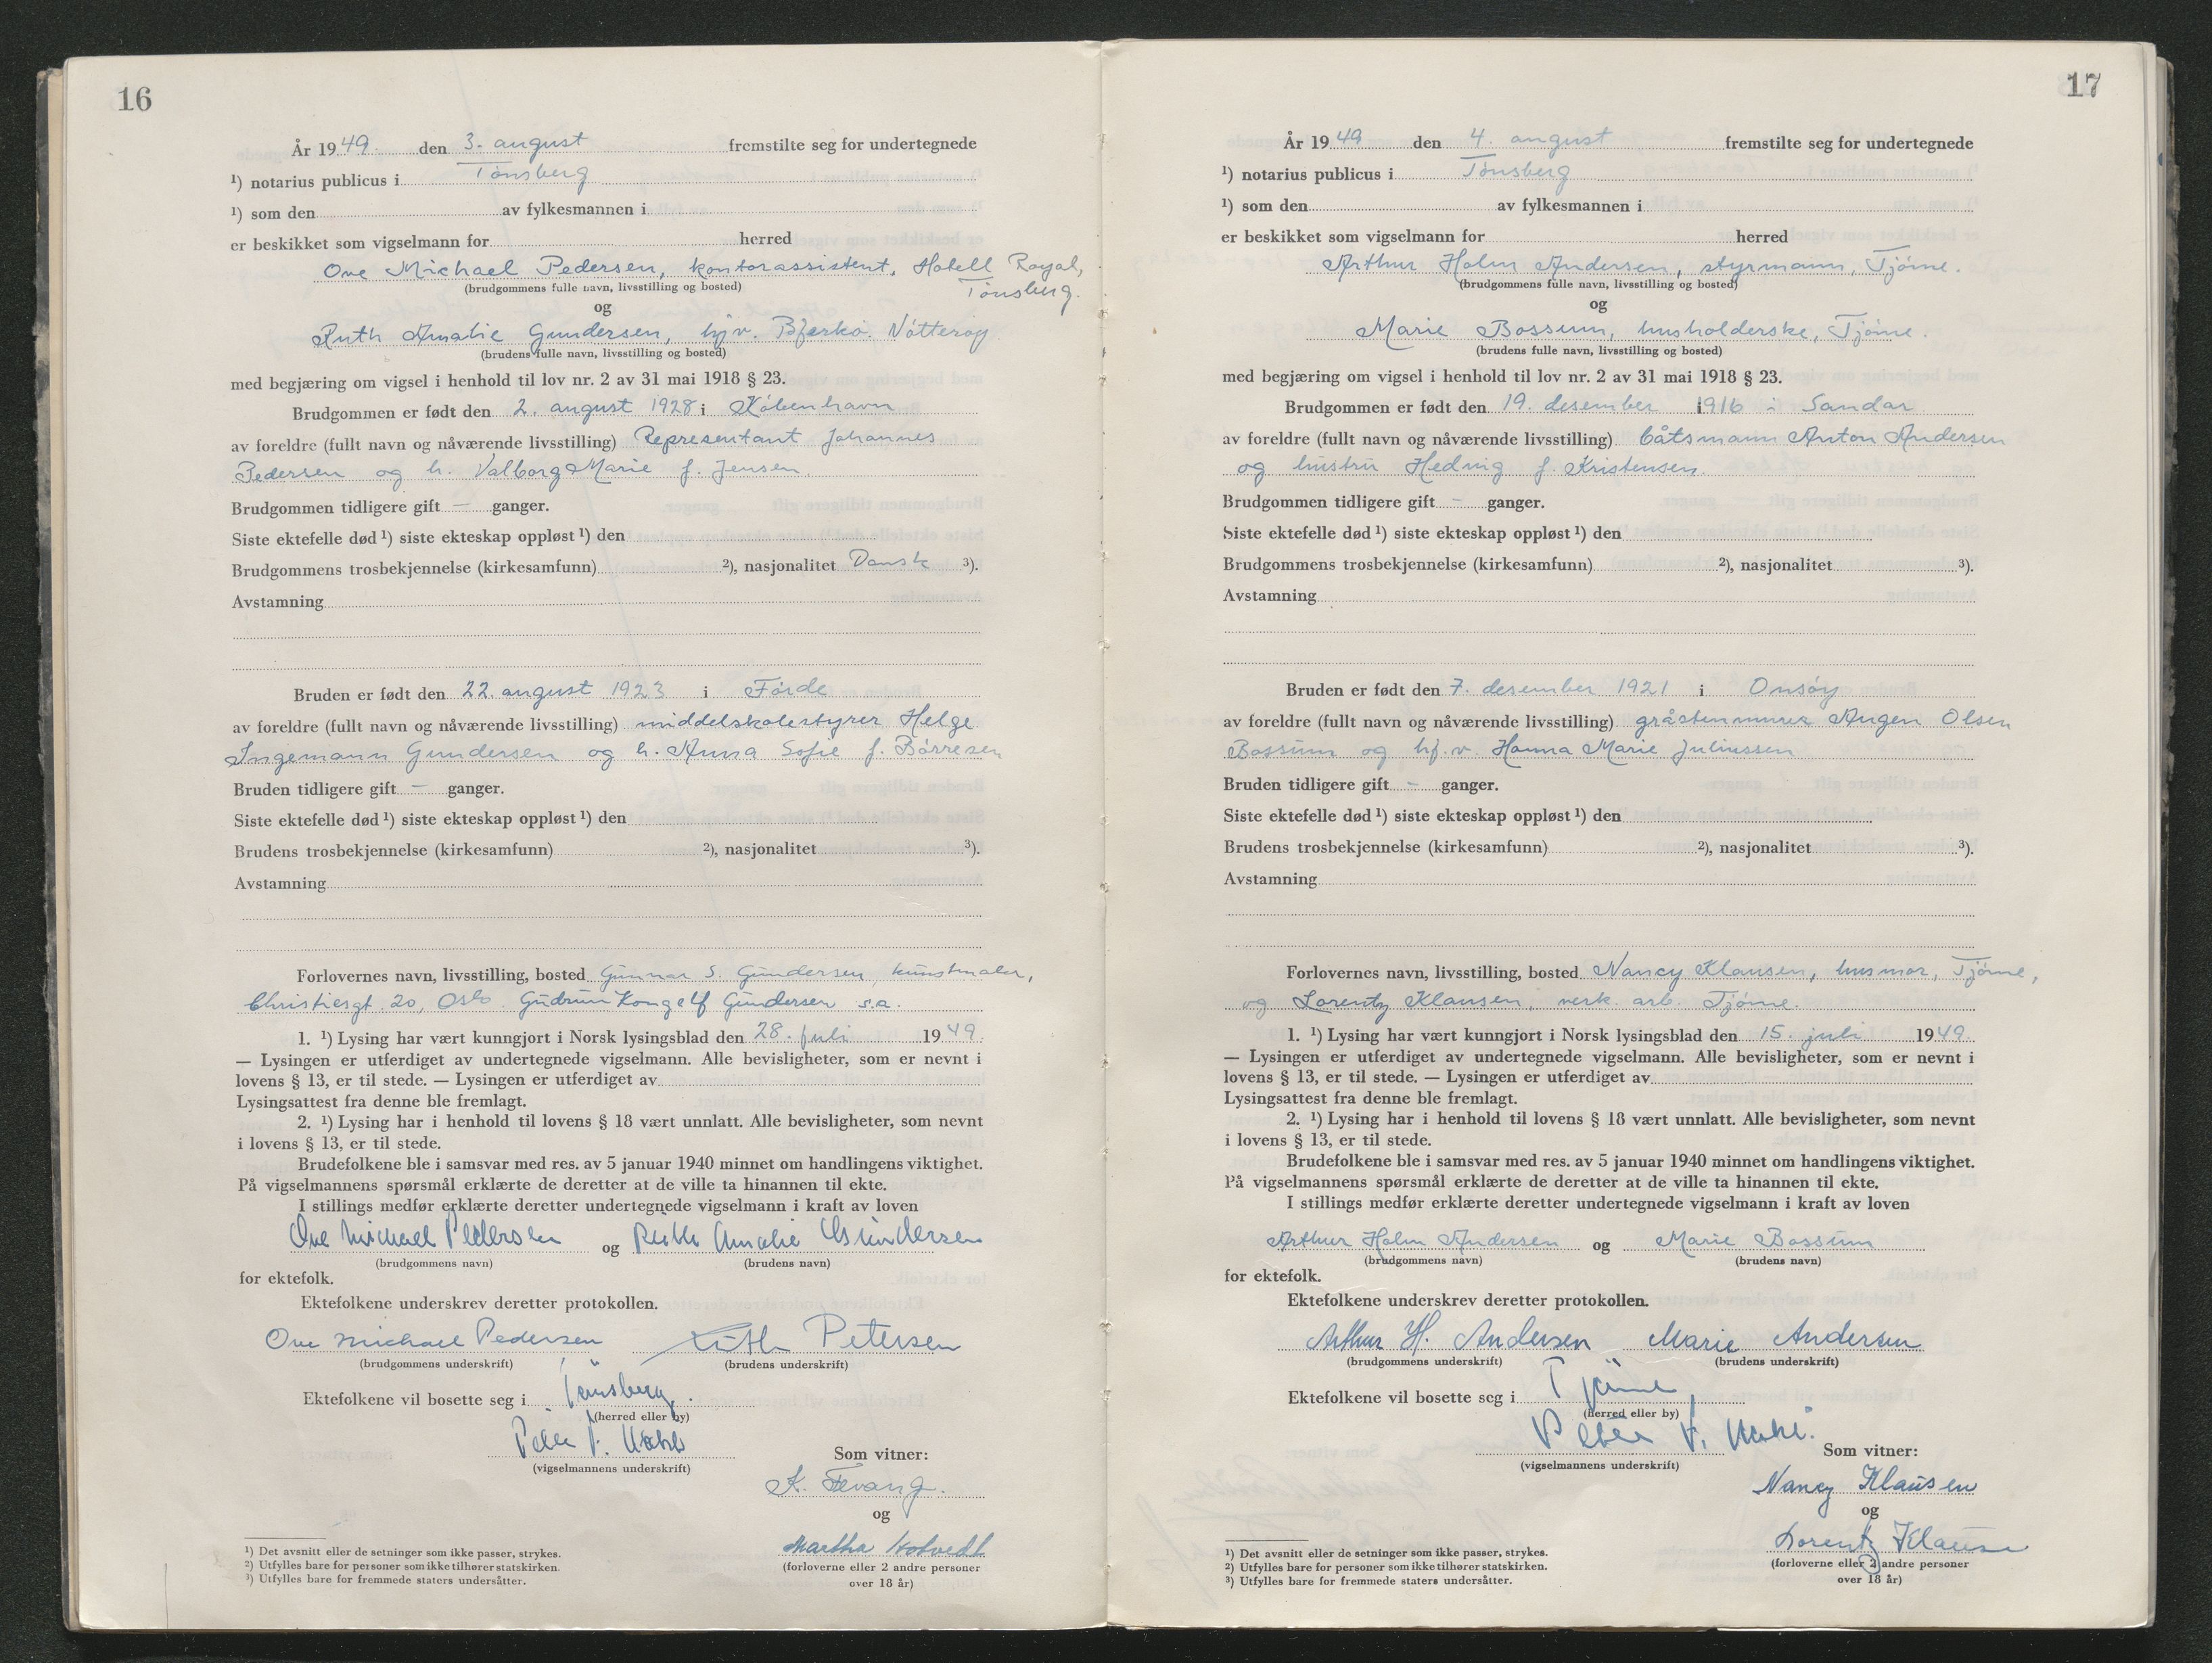 16
År 1949. den 3. august fremstilte seg for undertegnede
¹) notarius publicus i Tønsberg
¹) som den av fylkesmannen i
er beskikket som vigselmann for herred
Ove Michael Pedersen, kontorassistent, Hotell Royal,
(brudgommens fulle navn, livsstilling og bosted) Tønsberg.
og
Ruth Amalie Gundersen, hjv. Bjerkø. Nøtterøy
(brudens fulle navn, livsstilling og bosted)
med begjæring om vigsel i henhold til lov nr. 2 av 31 mai 1918 § 23.
Brudgommen er født den 2. august 1928 i København
av foreldre (fullt navn og nåværende livsstilling) Representant Johannes
Pedersen og h. Valborg Marie f. Jensen.
Brudgommen tidligere gift — ganger.
Siste ektefelle død ¹) siste ekteskap oppløst ¹) den
Brudgommens trosbekjennelse (kirkesamfunn) ²), nasjonalitet Dansk ³).
Avstamning
Bruden er født den 22. august 1923 i Førde
av foreldre (fullt navn og nåværende livsstilling) middelskolestyrer Helge
Ingemann Gundersen og h. Anna Sofie f. Børresen
Bruden tidligere gift — ganger.
Siste ektefelle død ¹) siste ekteskap oppløst ¹) den
Brudens trosbekjennelse (kirkesamfunn) ²), nasjonalitet ³).
Avstamning
Forlovernes navn, livsstilling, bosted Gunnar S. Gundersen, kunstmaler,
Christiesgt. 20, Oslo. Gudrun Kongelf Gundersen s.a.
1. ¹) Lysing har vært kunngjort i Norsk lysingsblad den 28. juli 1949.
— Lysingen er utferdiget av undertegnede vigselmann. Alle bevisligheter, som er nevnt i
lovens § 13, er til stede. — Lysingen er utferdiget av
Lysingsattest fra denne ble fremlagt.
2. ¹) Lysing har i henhold til lovens § 18 vært unnlatt. Alle bevisligheter, som nevnt
i lovens § 13, er til stede.
Brudefolkene ble i samsvar med res. av 5 januar 1940 minnet om handlingens viktighet.
På vigselmannens spørsmål erklærte de deretter at de ville ta hinannen til ekte.
I stillings medfør erklærte deretter undertegnede vigselmann i kraft av loven
Ove Michael Pedersen og Ruth Amalie Gundersen
(brudgommens navn) (brudens navn)
for ektefolk.
Ektefolkene underskrev deretter protokollen.
Ove Michael Pedersen Ruth Petersen
(brudgommens underskrift) (brudens underskrift)
Ektefolkene vil bosette seg i Tønsberg.
(herred eller by)
(vigselmannens underskrift)
Som vitner:
K. Fevang.
og
Martha Hotvedt
(forloverne eller 2 andre personer
over 18 år)
¹) Det avsnitt eller de setninger som ikke passer, strykes.
²) Utfylles bare for personer som ikke tilhører statskirken.
³) Utfylles bare for fremmede staters undersåtter.
17
År 1949 den 4. august fremstilte seg for undertegnede
¹) notarius publicus i Tønsberg
¹) som den av fylkesmannen i
er beskikket som vigselmann for herred
Arthur Holm Andersen, styrmann, Tjøme.
(brudgommens fulle navn, livsstilling og bosted)
og
Marie Bossum, husholderske, Tjøme.
(brudens fulle navn, livsstilling og bosted)
med begjæring om vigsel i henhold til lov nr. 2 av 31 mai 1918 § 23.
Brudgommen er født den 19. desember 1916 i Sandar
av foreldre (fullt navn og nåværende livsstilling) båtsmann Anton Andersen
og hustru Hedvig f. Kristensen.
Brudgommen tidligere gift — ganger.
Siste ektefelle død ¹) siste ekteskap oppløst ¹) den
Brudgommens trosbekjennelse (kirkesamfunn) ²), nasjonalitet ³).
Avstamning
Bruden er født den 7. desember 1921 i Onsøy
av foreldre (fullt navn og nåværende livsstilling) gråstenmurer Olsen
Bossum og hj.v. Hanna Marie Juliussen
Bruden tidligere gift — ganger.
Siste ektefelle død ¹) siste ekteskap oppløst ¹) den
Brudens trosbekjennelse (kirkesamfunn) ²), nasjonalitet ³).
Avstamning
Forlovernes navn, livsstilling, bosted Nancy Klausen, husmor, Tjøme,
og Lorentz Klausen, verk. arb. Tjøme.
1. ¹) Lysing har vært kunngjort i Norsk lysingsblad den 15. juli 1949.
— Lysingen er utferdiget av undertegnede vigselmann. Alle bevisligheter, som er nevnt i
lovens § 13, er til stede. — Lysingen er utferdiget av
Lysingsattest fra denne ble fremlagt.
2. ¹) Lysing har i henhold til lovens § 18 vært unnlatt. Alle bevisligheter, som nevnt
i lovens § 13, er til stede.
Brudefolkene ble i samsvar med res. av 5 januar 1940 minnet om handlingens viktighet.
På vigselmannens spørsmål erklærte de deretter at de ville ta hinannen til ekte.
I stillings medfør erklærte deretter undertegnede vigselmann i kraft av loven
Arthur Holm Andersen og Marie Bossum
(brudgommens navn) (brudens navn)
for ektefolk.
Ektefolkene underskrev deretter protokollen.
Arthur H. Andersen Marie Andersen
(brudgommens underskrift) (brudens underskrift)
Ektefolkene vil bosette seg i Tjøme
(herred eller by)
(vigselmannens underskrift)
Som vitner:
Nancy Klausen
og
Lorentz Klausen
(forloverne eller 2 andre personer
over 18 år)
¹) Det avsnitt eller de setninger som ikke passer, strykes.
²) Utfylles bare for personer som ikke tilhører statskirken.
³) Utfylles bare for fremmede staters undersåtter.